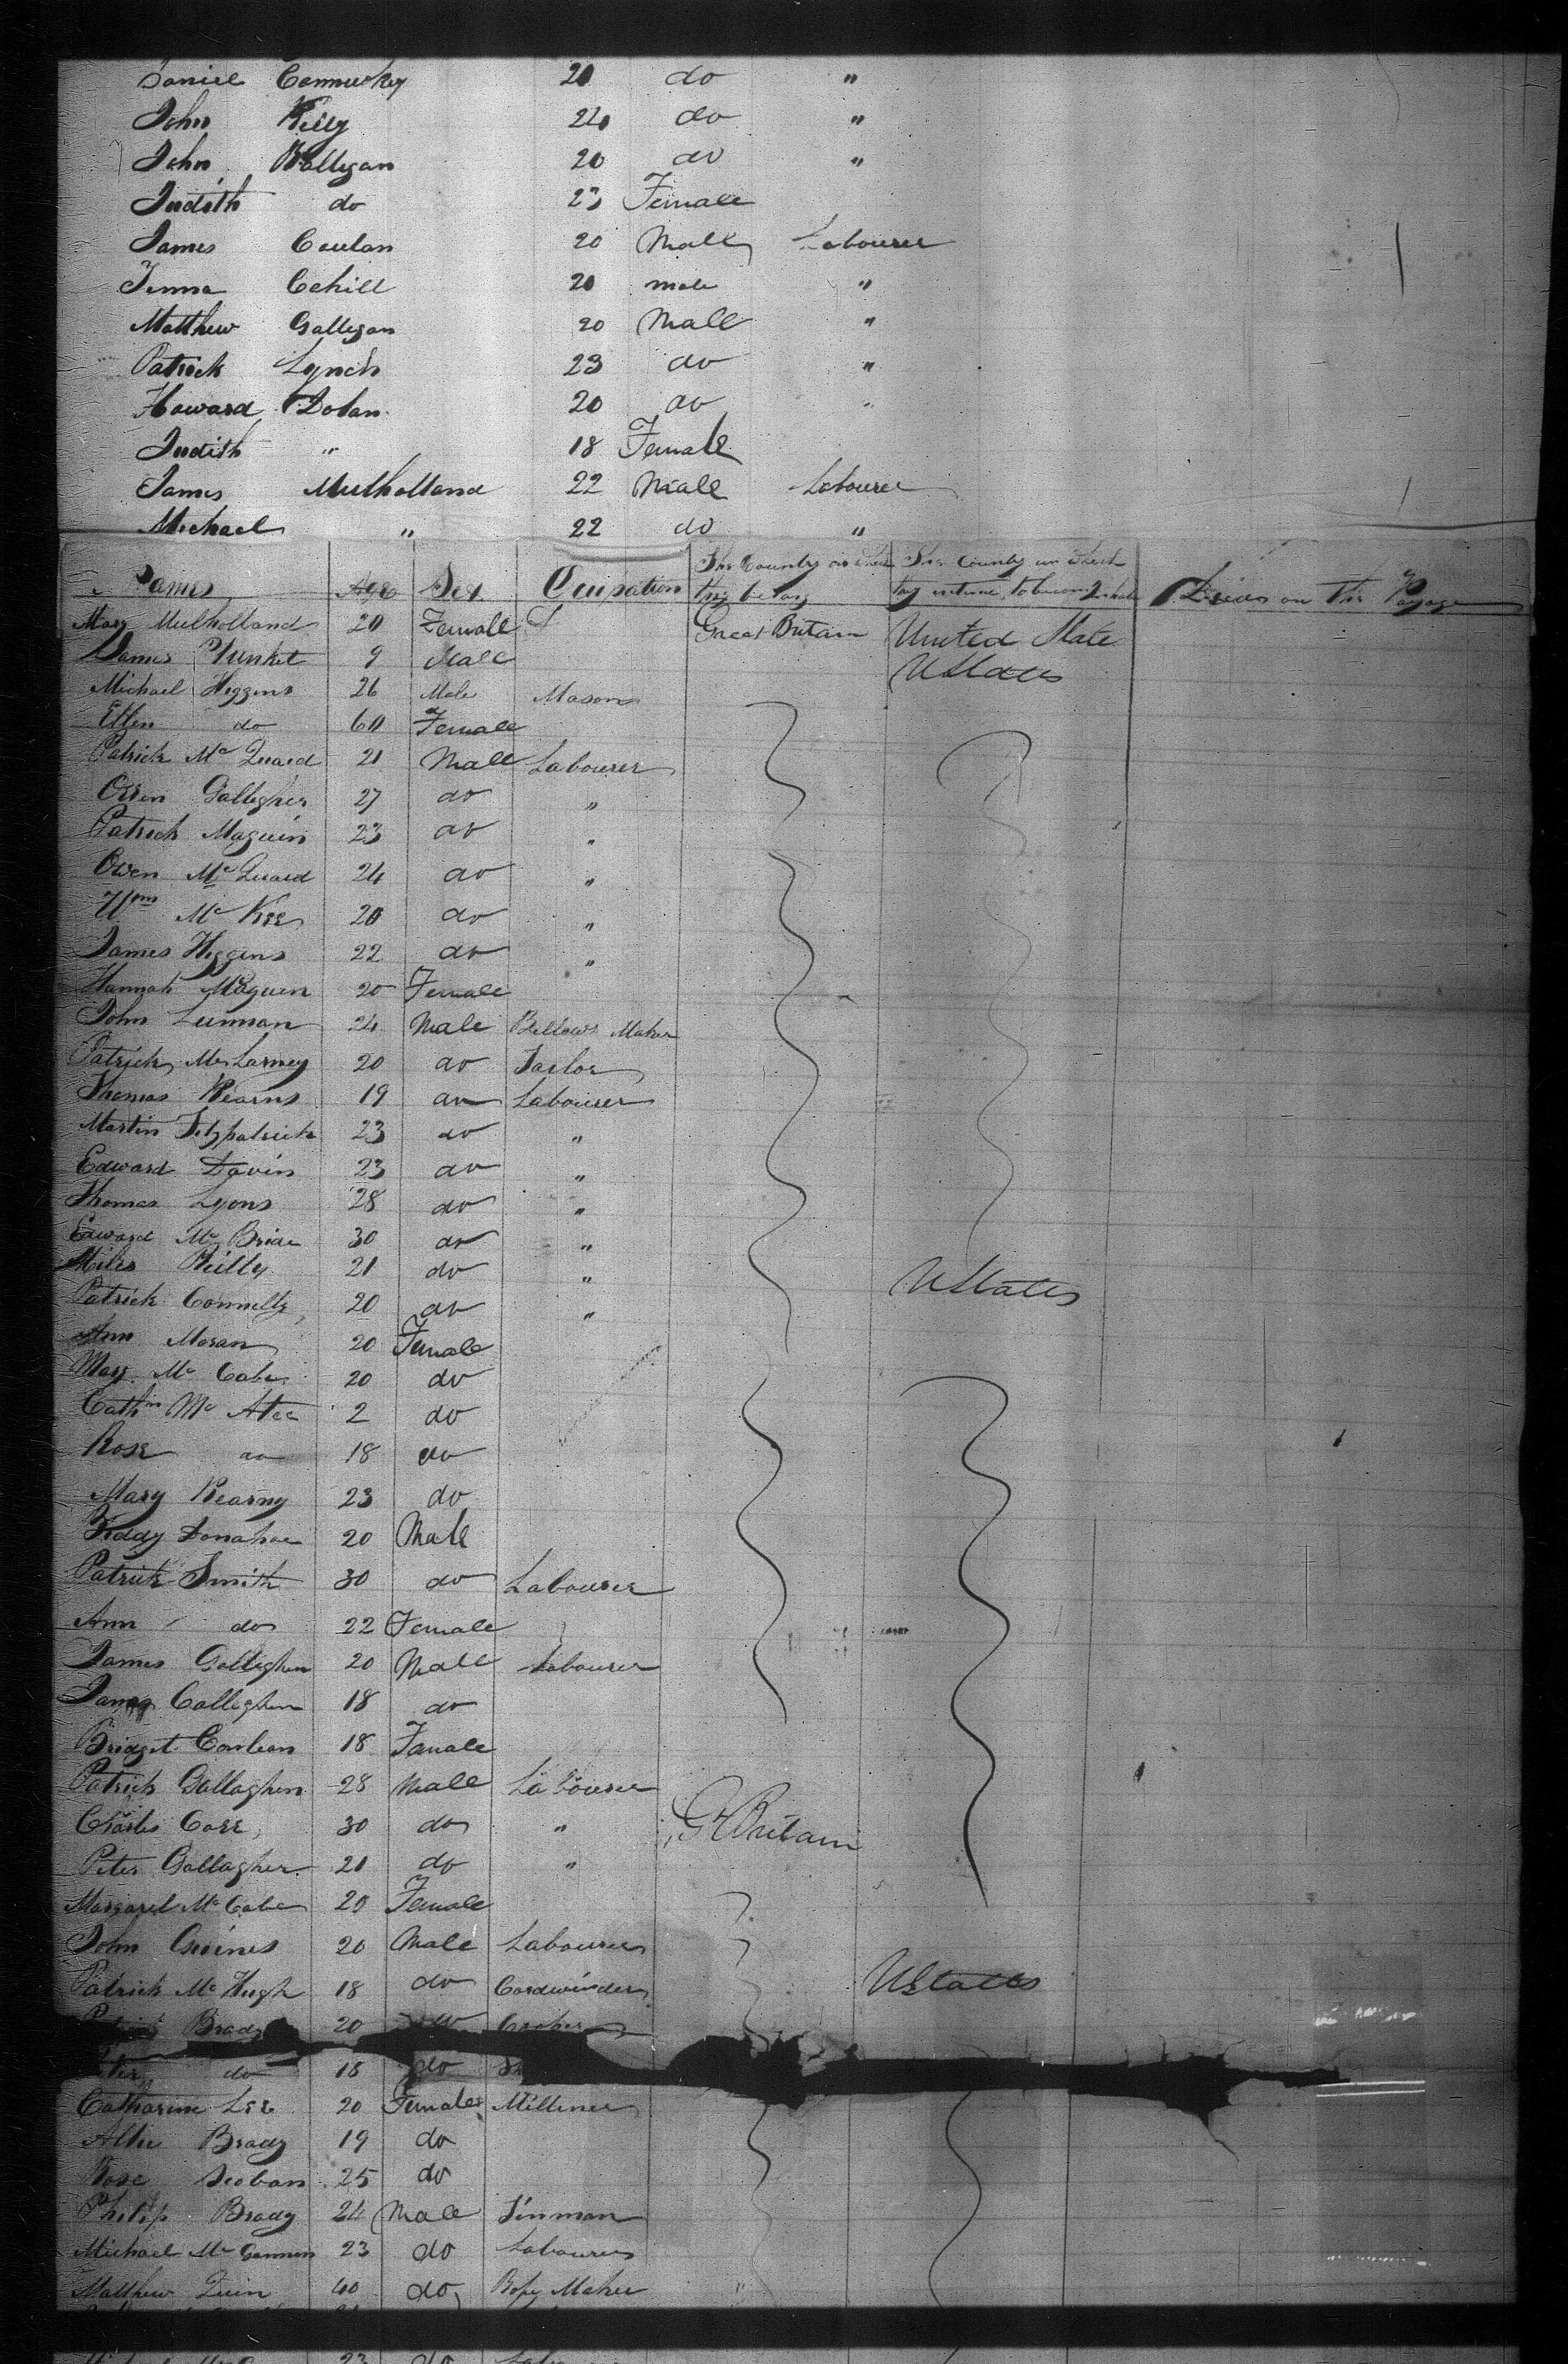 Daniel 20 do "
John Reilly 24 do "
John Galligan 20 do "
Judith do 23 Female
James Conlan 20 Male Labourer
Cahill 20 male "
Matthew Galligan 20 Male "
Patrick Lynch 23 do "
Howard Dolan 20 do "
Judith " 18 Female
James Mulholland 22 Male Labourer
Michael " 22 do "
Names Age Sex Ocupation The Country in which they belong The County in which they intend to become Died on the Voyage
Mary Mulholland 20 Female Great Britain United State
James Plunket 9 Male UStates
Michael Higgins 26 Male Mason
Ellen do 60 Female
Patrick Mc Quaid 21 Male Labourer
Owen Gallegher 27 do "
Patrick Maguin 23 do "
Owen Mc Quaid 24 do "
Wm Mc Kee 20 do "
James Higgins 22 do "
Hannah Maguin 20 Female
John Lunnan 24 Male Bellows Maker
Patrick Mc Larney 20 do Tailor
Thomas Kearns 19 do Labourer
Martin Fitzpatrick 23 do "
Edward Davin 23 do "
Thomas Lyons 28 do "
Edward Mc Bride 30 do "
Miles Reilly 21 do " UStates
Patrick Connelly 20 do "
Ann Moran 20 Female
Mary Mc Cabe 20 do
Cathn Mc Atee 2 do
Rose do 18 do
Mary Kearny 23 do
Donahoe 20 Male
Patrick Smith 30 do Labourer
Ann do 22 Female
James Galleghen 20 Male Labourer
James Calleghen 18 do
Bridget Conlean 18 Female
Patrick Gallaghen 28 Male Labourer
Charles Case 30 do " Gt Britain
Peter Gallagher 21 do "
Margaret Mc Cabe 20 Female
John Grimes 20 Male Labourer
Patrick Mc Hugh 18 do Cordwinder UStates
Brady 20 do
do 18 do
Catharine Lee 20 Female Milliner
Brady 19 do
Rose 25 do
Philip Brady 24 Male Tinman
Michael Mc Gannon 23 do Labourer
Matthew Quin 40 do Rope Maker "
23 do